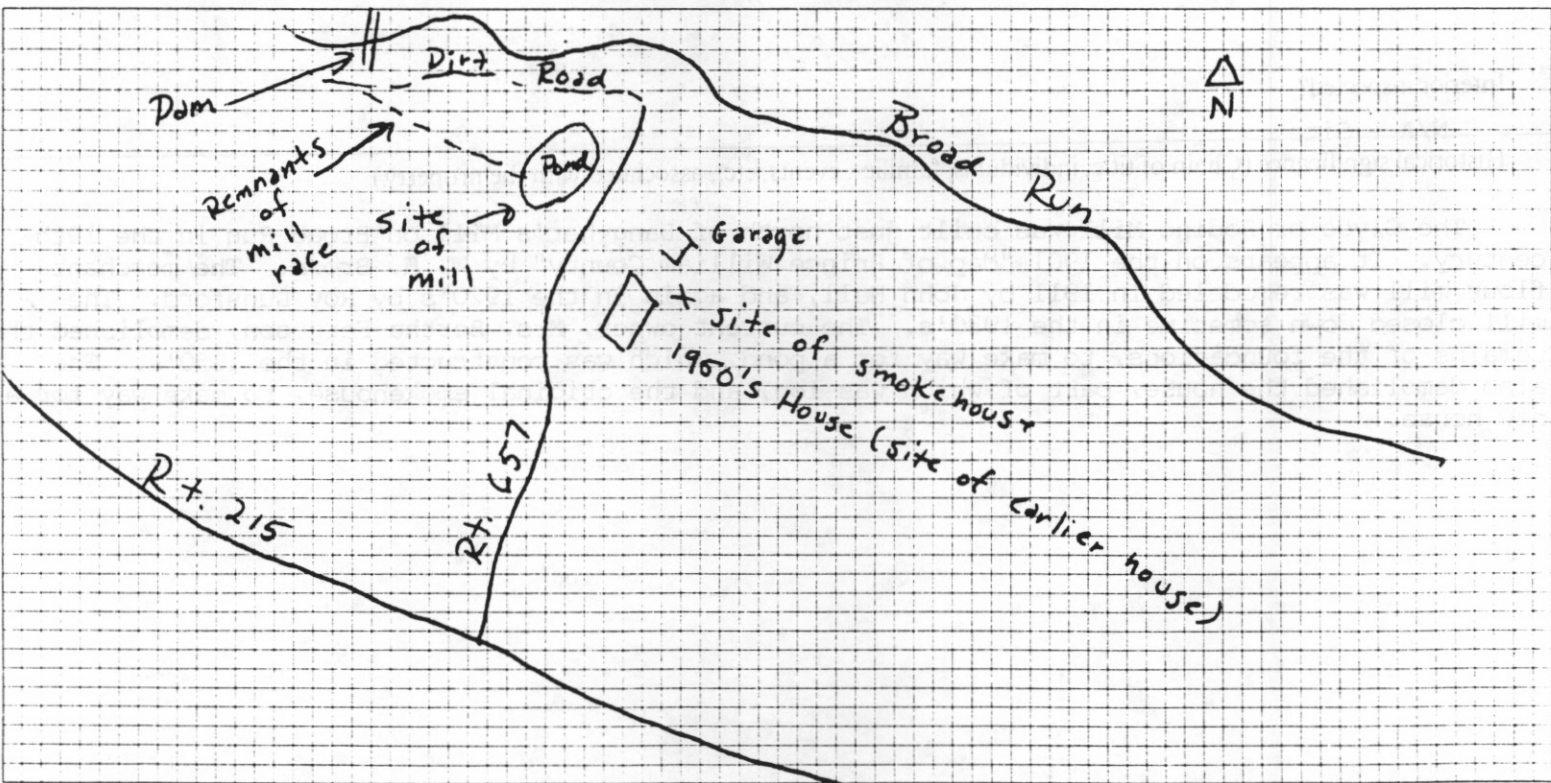 Dam
Dirt Road
N
Broad Run
Remnants
of
mill
race
Pond
site
of
mill
Garage
X site of smokehouse
1950's House (site of earlier house)
Rt. 657
Rt. 215